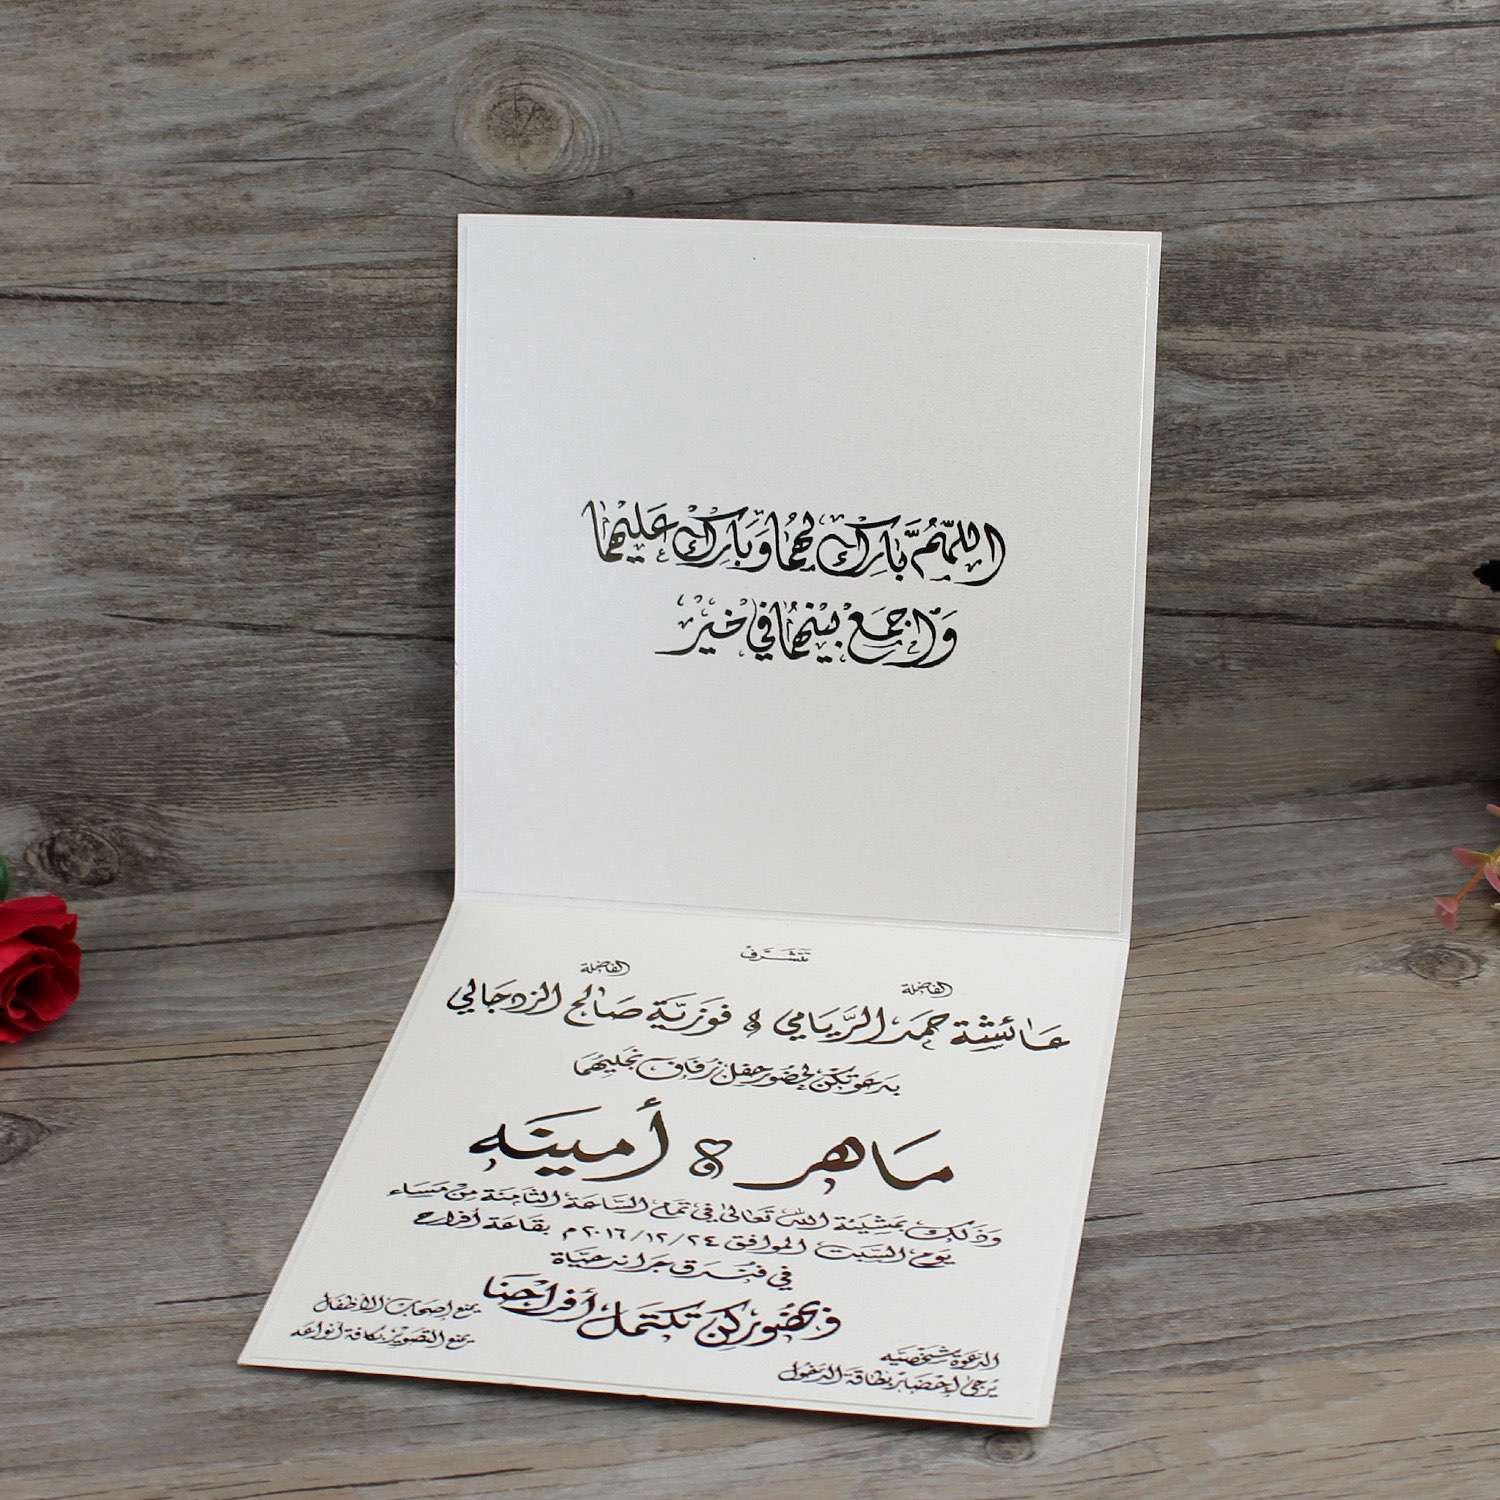 اللَّهُمَّ بَارِكْ لَهُمَا وَبَارِكْ عَلَيْهِمَا
وَاجْمَعْ بَيْنَهُمَا فِي خَيْرْ
تتشرف
الفاضلة الفاضلة
عائشة حمد الريامي و فوزية صالح الزدجالي
بدعوتكن لحضور حفل زفاف نجليهما
ماهر و أمينه
وذلك بمشيئة الله تعالى في تمام الساعة الثامنة من مساء
يوم السبت الموافق ٢٠١٦/١٢/٢٤ م بقاعة أفراح
في فندق جراند حياة
وبحضوركن تكتمل أفراحنا
الدعوة شخصيه
يرجى إحضار بطاقة الدخول
يمنع إصحاب الأطفال
يمنع التصوير بكافة أنواعه